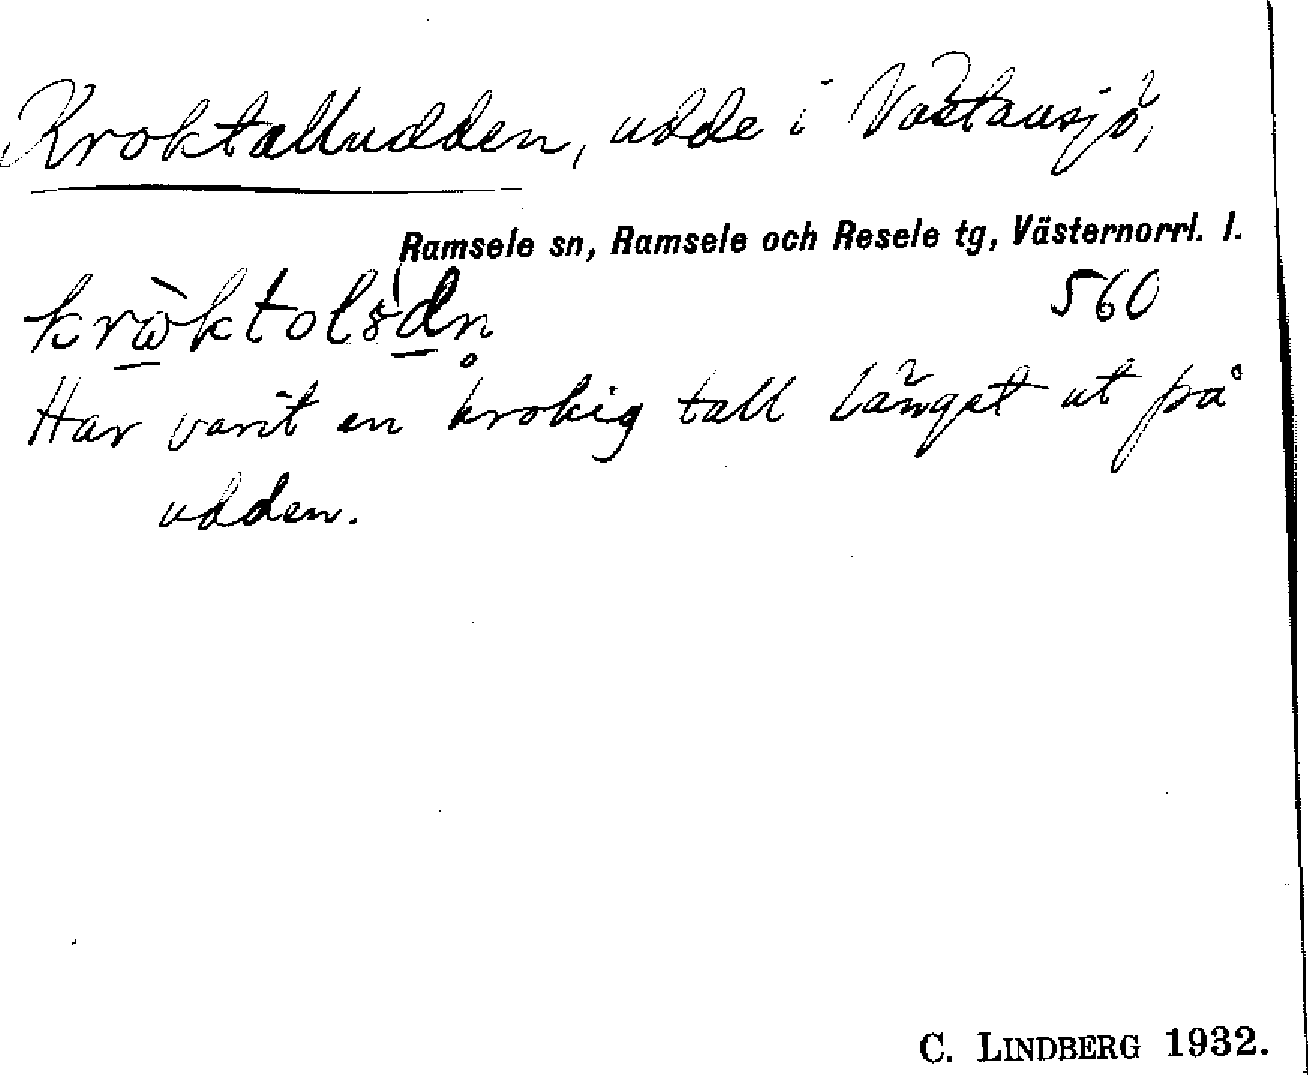 Kroktalludden, udde i Västansjö,
Ramsele sn, Ramsele och Resele tg, Västernorrl. l.
560
Har varit en krokig tall längst ut på
udden.
C. LINDBERG 1932.